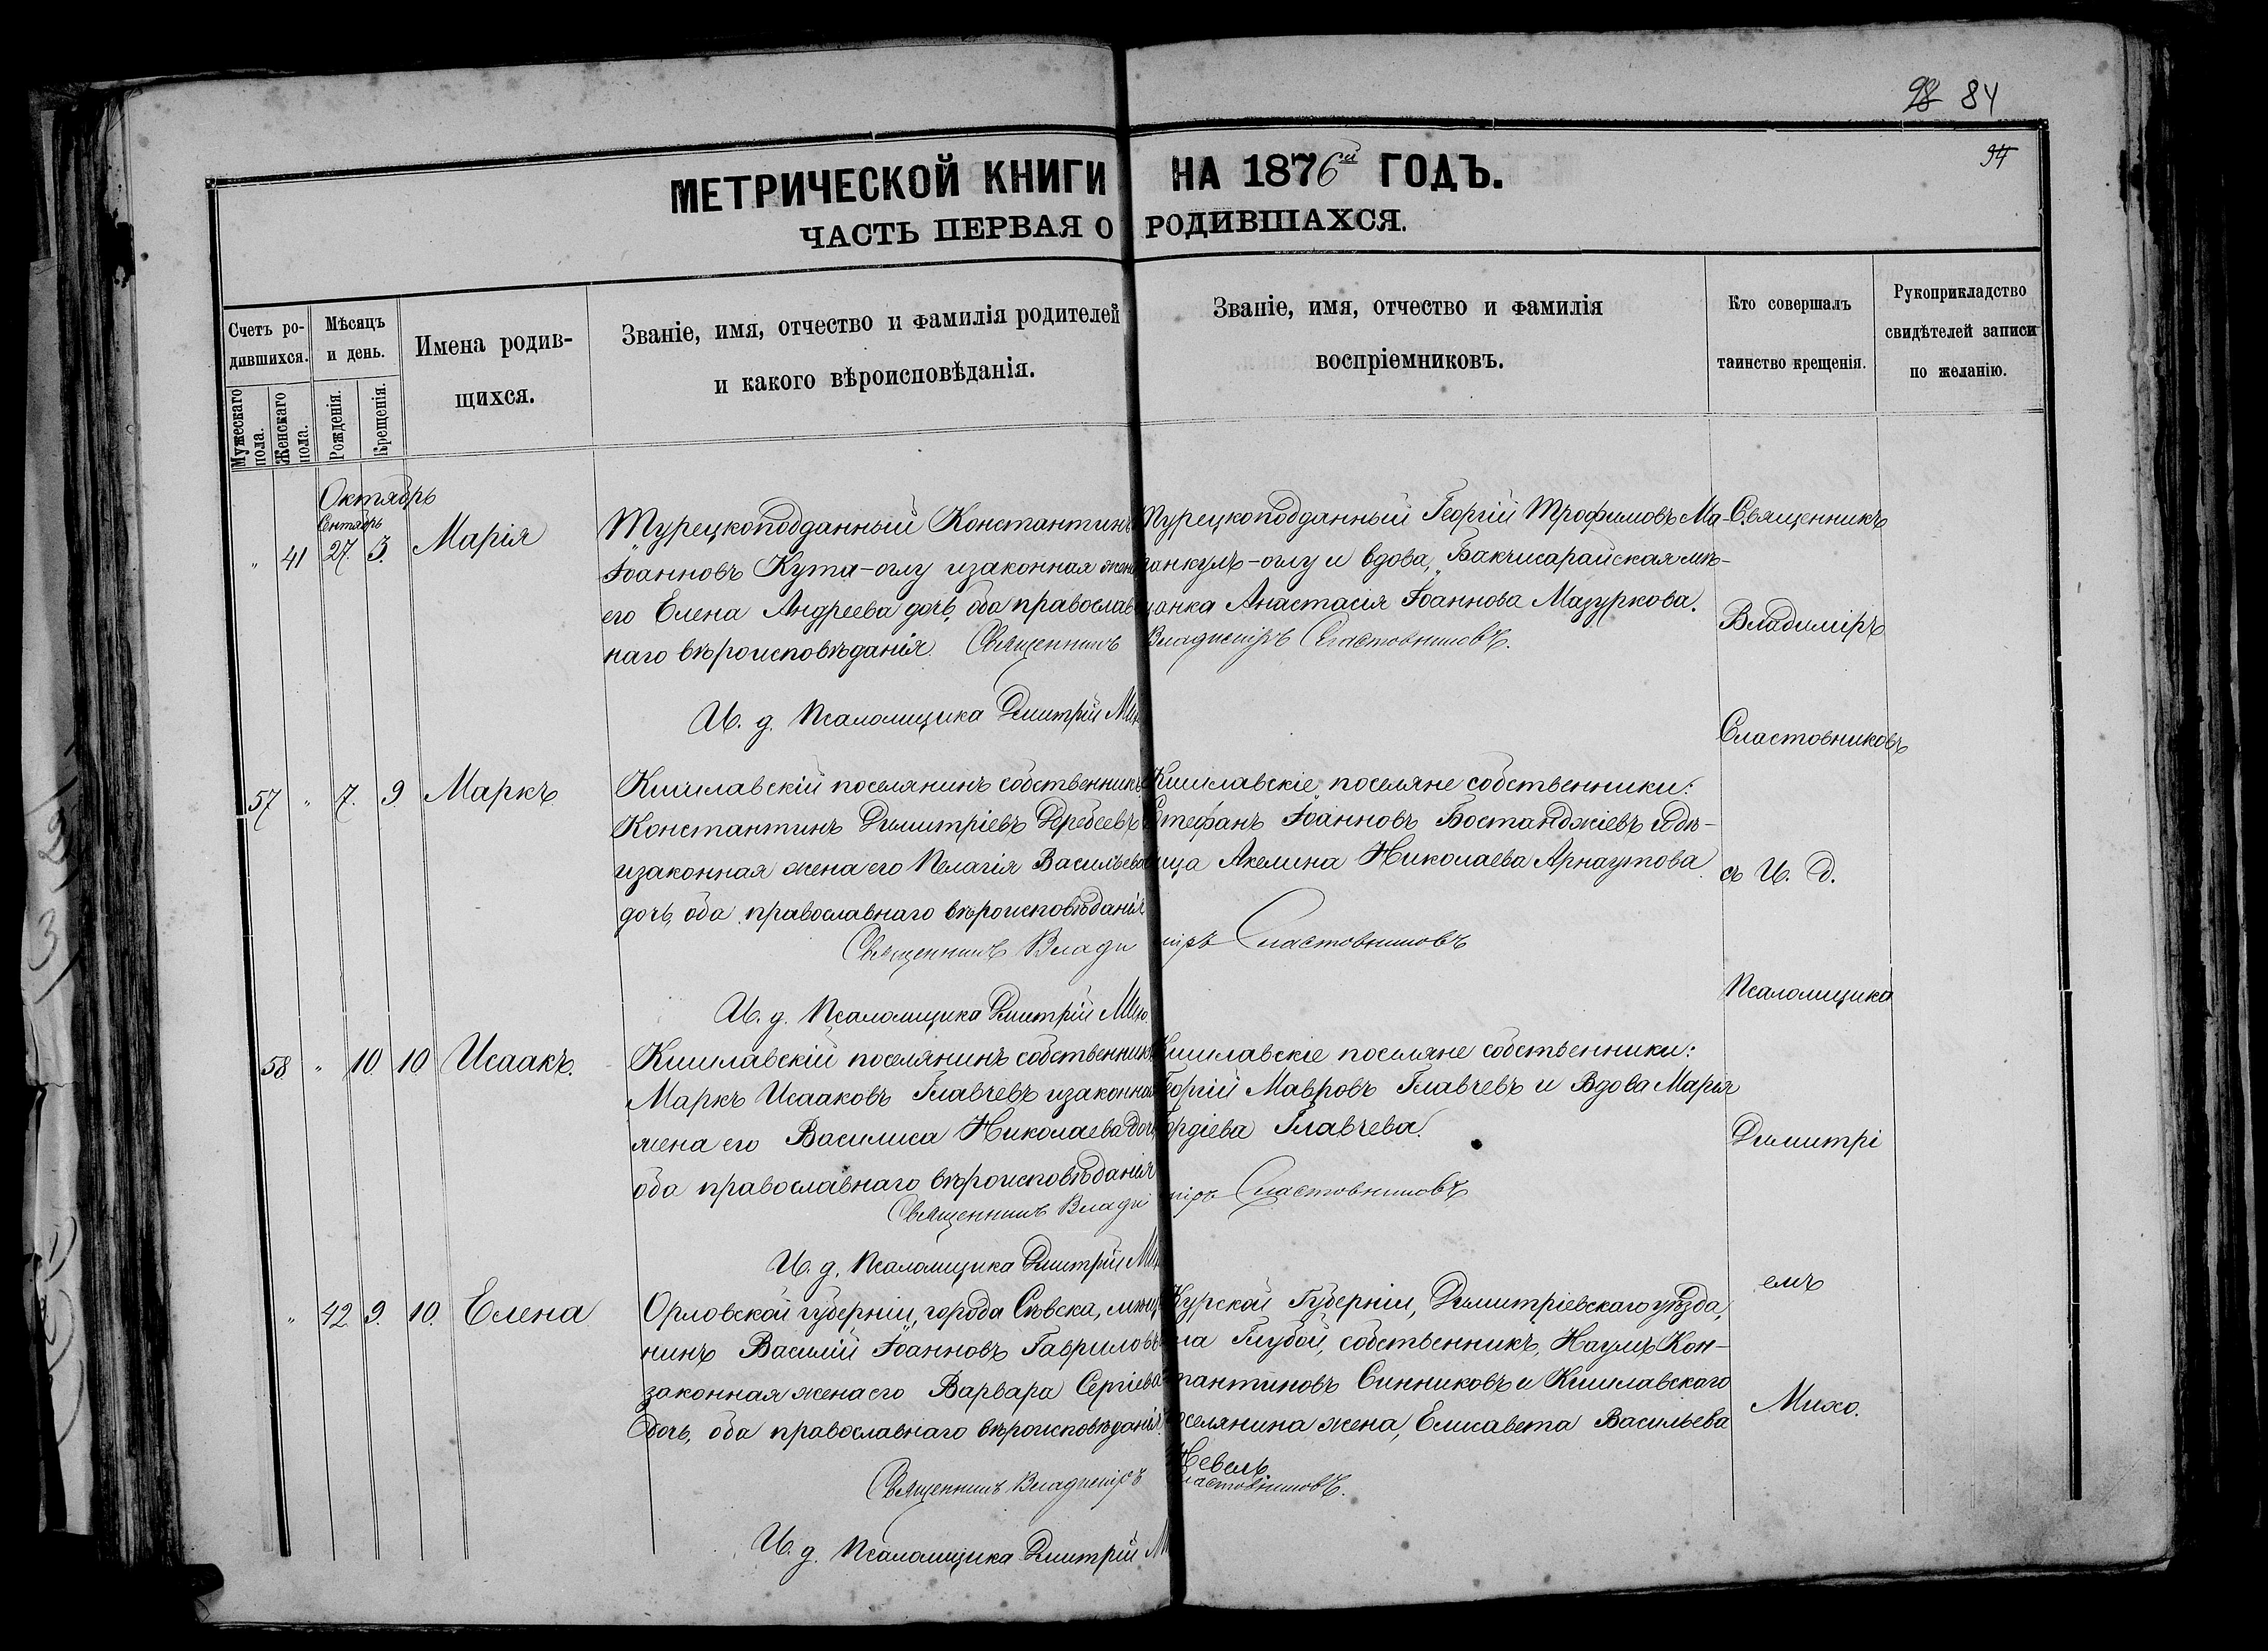 98 84
94
МЕТРИЧЕСКОЙ КНИГИ НА 1876й ГОДЪ.
ЧАСТЬ ПЕРВАЯ О РОДИВШАХСЯ.
Счетъ ро-
дившихся.
Мужескаго пола.
Женскаго пола.
Мѣсяцъ
и день.
Рожденія.
Крещенія.
Имена родив-
щихся.
Званіе, имя, отчество и фамилія родителей
и какого вѣроисповѣданія.
Званіе, имя, отчество и фамилія
воспріемниковъ.
Кто совершалъ
таинство крещенія.
Рукоприкладство
свидѣтелей записи
по желанію.
Октябрь
Сентябрь
" 41 27. 3. Марія
Турецкоподданный Константинъ
Іоанновъ Кута-оглу и законная жена
его Елена Андреева дочь, оба православ
наго вѣроисповѣданія. Священникъ Владиміръ Сластовниковъ.
И. д. Псаломщика Димитрій Мих
Турецкоподданный Георгій Трофимовъ Ма-
ранкулъ-оглу и вдова, Бакчисарайская мѣ-
щанка Анастасія Іоаннова Мазуркова.
57 " 7. 9 Маркъ
Кишлавскій поселянинъ собственникъ
Константинъ Димитріевъ Деребеевъ
и законная жена его Пелагія Васильева
дочь, оба православнаго вѣроисповѣданія
Священникъ Владиміръ Сластовниковъ
И. д. Псаломщика Димитрій Михо
Кишлавскіе поселяне собственники:
Стефанъ Іоанновъ Бостанджіевъ и дѣ-
вица Акелина Николаева Арнаутова
58. " 10. 10 Исаакъ.
Кишлавскій поселянинъ собственникъ
Маркъ Исааковъ Главчевъ и законная
жена его Василиса Николаева дочь
оба православнаго вѣроисповѣданія
Священникъ Владиміръ Сластовниковъ
И. д. Псаломщика Димитрій Мих
Кишлавскіе поселяне собственники:
Георгій Мавровъ Главчевъ и Вдова Марія
Гордіева Главчева.
" 42 9. 10. Елена
Орловской губерніи, города Сѣвска, мѣщ
нинъ Василій Іоанновъ Гавриловъ
законная жена его Варвара Сергіева
дочь, оба православнаго вѣроисповѣданія.
Священникъ Владиміръ Сластовниковъ.
И. д. Псаломщика Димитрій М
Курской Губерніи, Димитріевскаго уѣзда,
села Глубой, собственникъ, Наумъ Кон-
стантиновъ Синниковъ и Кишлавскаго
поселянина жена, Елисавета Васильева
Невель
Священникъ
Владиміръ
Сластовниковъ
съ И. Д.
Псаломщика
Димитрі
емъ
Михо.